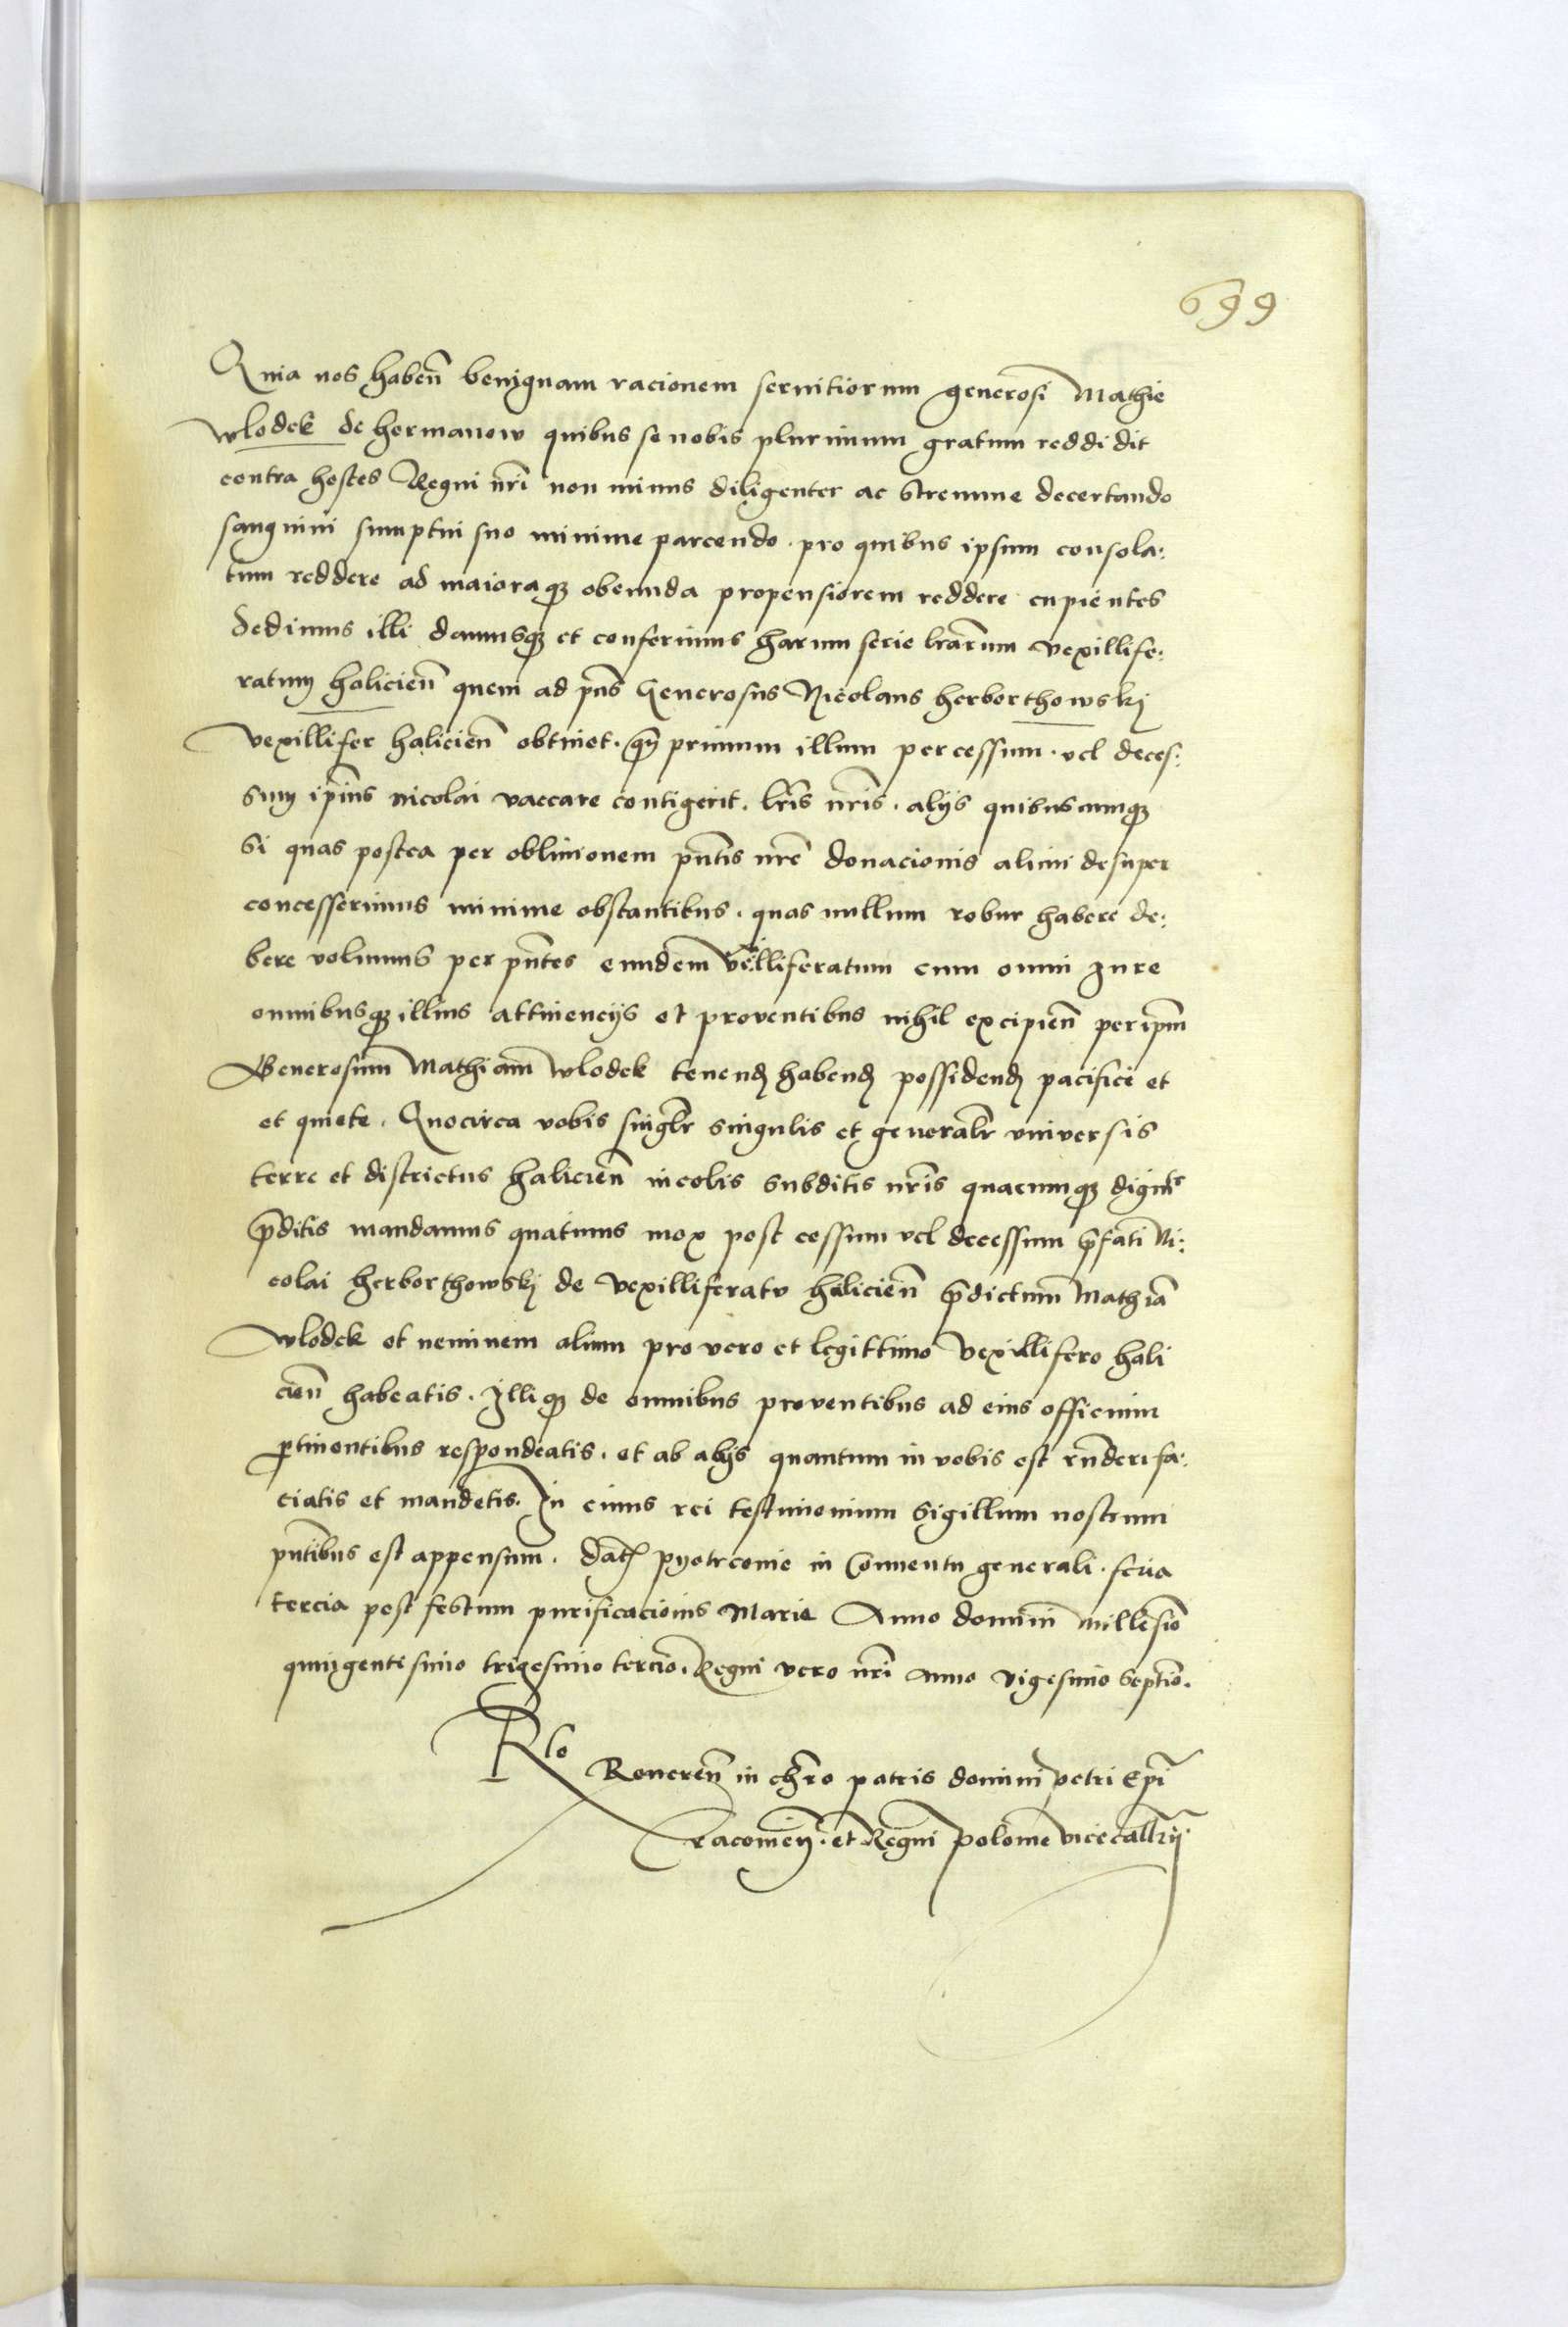 699
Quia nos habeñ benignam racionem seruitiorum generosi Mathie
wlodek de hermanow quibus se nobis plurimum gratum reddidit
contra hostes Regni nri non minus diligenter ac strenuue decertando
sanguini sumptui suo minime parcendo. pro quibus ipsum consola:
tum reddere ad maioraq obeunda propensiorem reddere cupientes
dedimus illi damusq et conferimus harum serie lrarum vexillife:
ratum halicień quem ad pns Generosus Nicolaus herborthowskj
vexillifer halicień obtinet. qn primum illum per cessum. vel deces:
sum ipius nicolai vaccare contigerit. lris nris. alijs quibuscumq
si quas postea per obliuionem pntis nre donacionis alicui desuper
concesserimus minime obstantibus. quas nullum robur habere de:
bere volumus per pntes eundem vexilliferatum cum omni Jure
omnibusq illius attinencijs et prouentibus nihil excipień per ipm
Generosum Mathiam wlodek tenend habend possidend pacifice et
et quiete. Quocirca vobis singlr singulis et generalr vniuersis
terre et districtus halicień incolis subditis nris quacumq dignts
pditis mandamus quatinus mox post cessum vel decessum pfati Ni:
colai herborthowskj de vexilliferatu halicień pdictum Mathiā
wlodek et neminem alium pro vero et legittimo vexillifero hali
cień habeatis. Illiq de omnibus prouentibus ad eius officium
ptinentibus respondeatis. et ab alijs quantum in vobis est rnderi fa:
ciatis et mandetis. In cuius rei testimonium Sigillum nostrum
pntibus est appensum. dat pyotrconie in Conuentu generali. feria
tercia post festum purificacionis Marie Anno domini millesio
quingentesimo trigesimo tercio. Regni vero nri anno vigesimo septio.
Rlo Reueren in chro patris domini petri Epi
Cracouień. et Regni polonie vicecallrij.